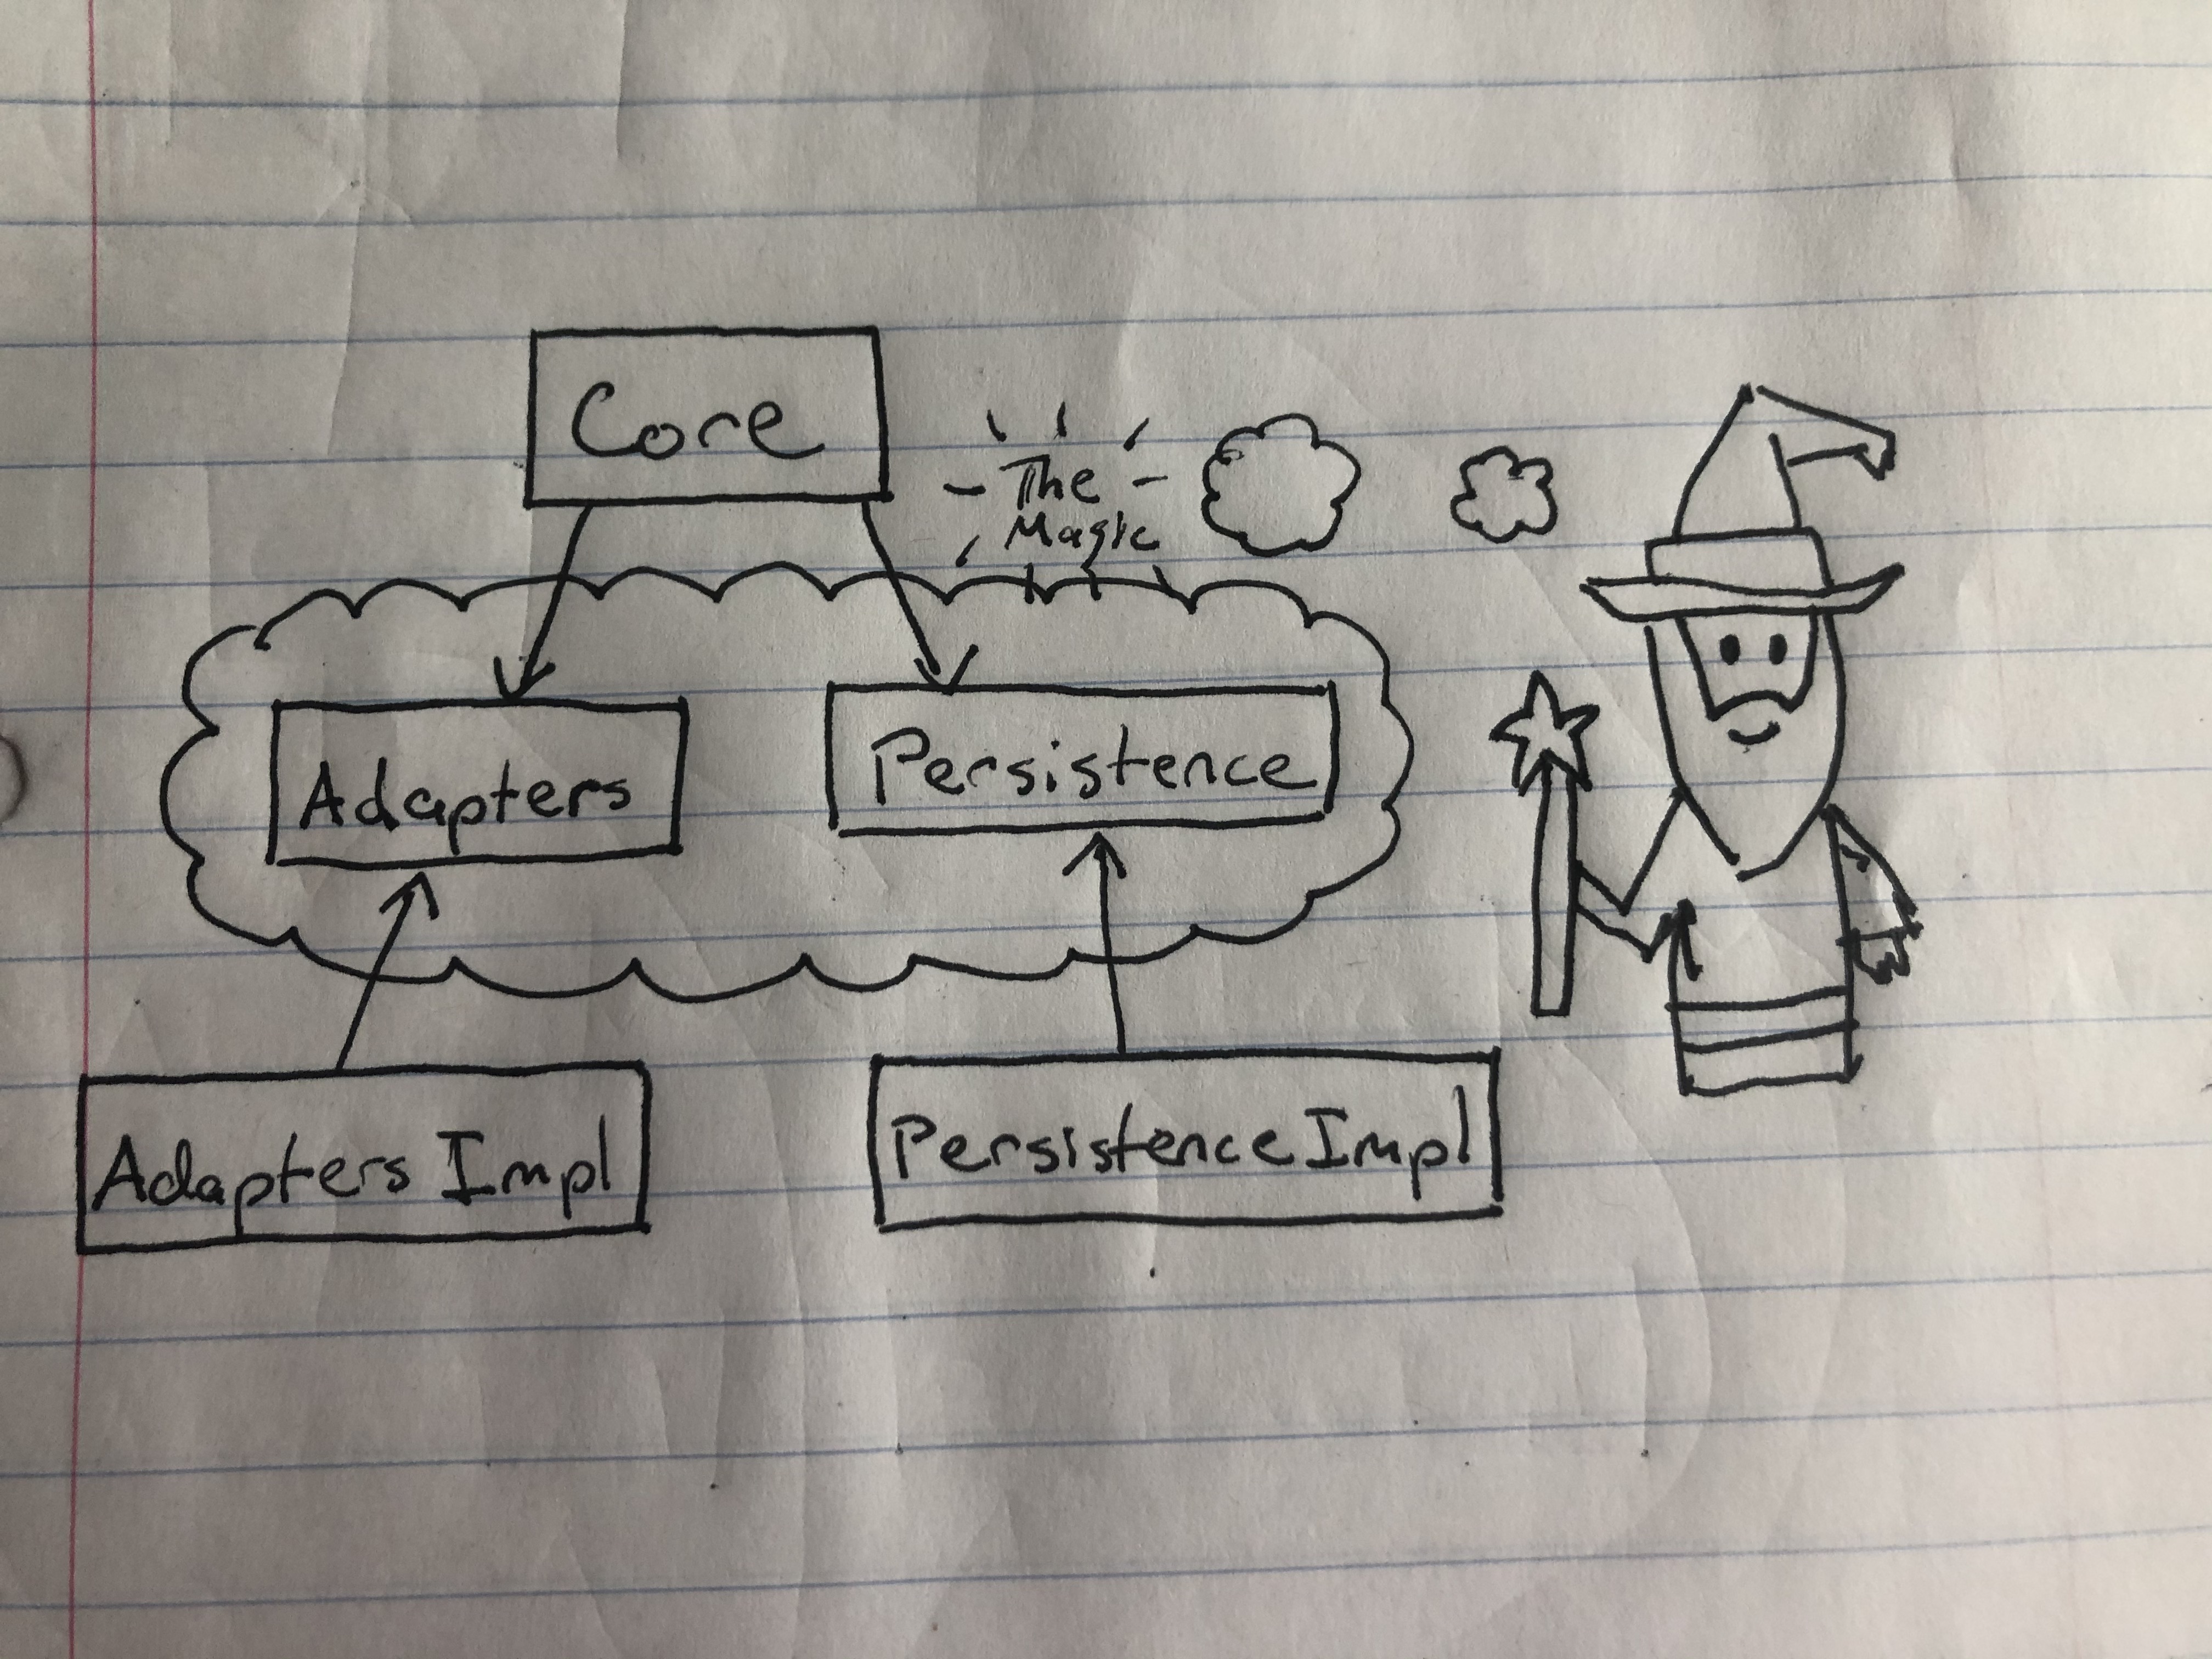 Core
The
Magic
Adapters
Persistence
Adapters Impl
Persistence Impl